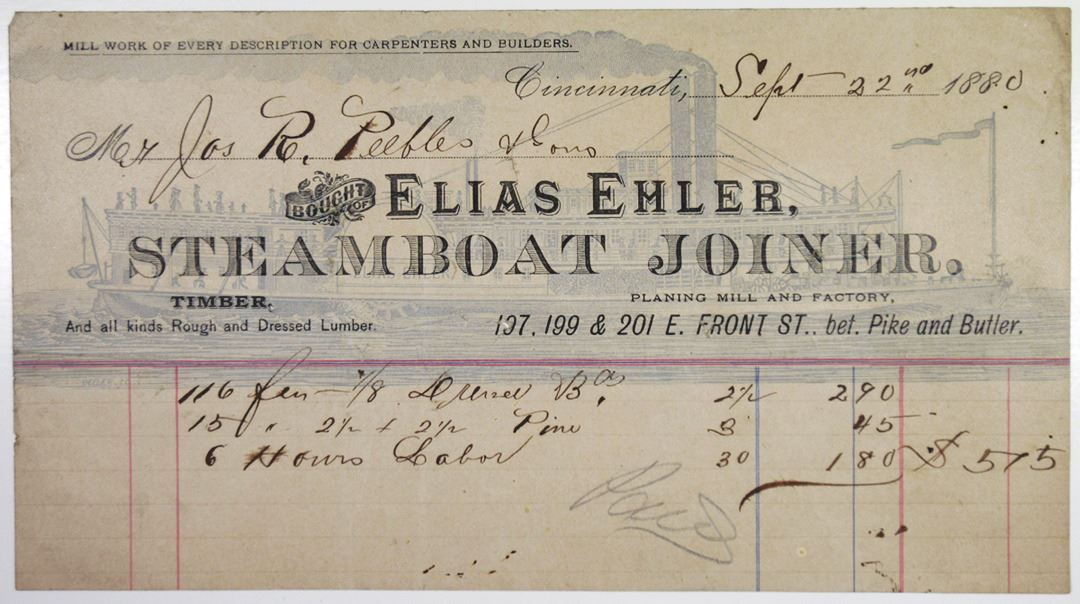 MILL WORK OF EVERY DESCRIPTION FOR CARPENTERS AND BUILDERS.
Cincinnati, Sept 22nd 1880
Mr Jos R. Peebles & Sons
BOUGHT OF ELIAS EHLER,
STEAMBOAT JOINER.
TIMBER,
And all kinds Rough and Dressed Lumber.
PLANING MILL AND FACTORY,
197, 199 & 201 E. FRONT ST., bet. Pike and Butler.
116 7/8 Dressed Bds 2½ 290
15 " 2½ x 2½ Pine 3 45
6 Hours Labor 30 180 $ 515
Paid